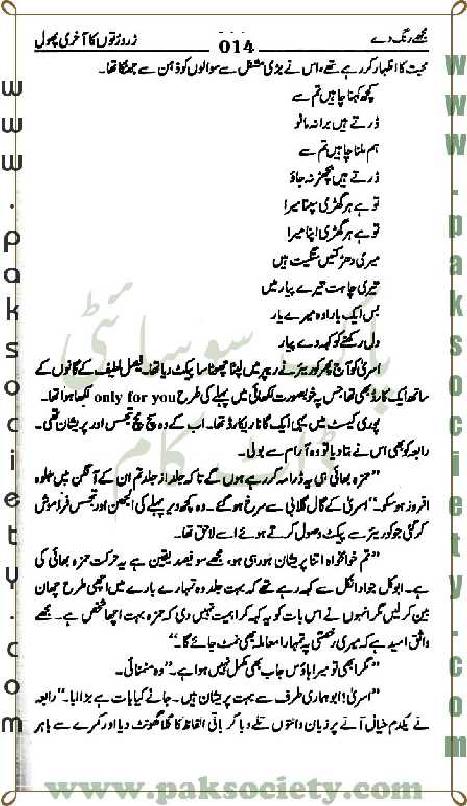 مجھے رنگ دے 014 زرد رتوں کا آخری پھول
محبت کا اظہار کر رہے تھے، اس نے بڑی مشکل سے سوالوں کو ذہن سے جھٹکا تھا۔
کچھ کہنا چاہیں تم سے
ڈرتے ہیں برا نہ مانو
ہم ملنا چاہیں تم سے
ڈرتے ہیں بچھڑ نہ جاؤ
تو ہے ہر گھڑی سپنا میرا
تو ہے ہر گھڑی اپنا میرا
میری دھڑکنیں سنگیت ہیں
تیری چاہت تیرے پیار میں
بس ایک بار او میرے یار
دل رکھنے کو کہہ دے پیار
اسریٰ کو آج پھر کوریئر نے ریپر میں لپٹا چھوٹا سا پیکٹ دیا تھا۔ فیصل لطیف کے گانوں کے
ساتھ ایک کارڈ بھی تھا جس پہ خوبصورت لکھائی میں پہلے کی طرح only for you لکھا ہوا تھا۔
پوری کیسٹ میں یہی ایک گانا ریکارڈ تھا۔ اب کے وہ سچ مچ تجسس اور پریشان تھی۔
رابعہ کو بھی اس نے بتا دیا تو وہ آرام سے بولی۔
”حمزہ بھائی ہی یہ ڈرامہ کر رہے ہوں گے تاکہ جلد از جلد تم ان کے آنگن میں جلوہ
افروز ہو سکو۔“ اسریٰ کے گال گلابی سے سرخ ہو گئے۔ وہ کچھ دیر پہلے کی الجھن اور تجسس فراموش
کر گئی جو کوریئر سے پیکٹ وصول کرتے ہوئے اسے لاحق تھا۔
”تم خوامخواہ اتنا پریشان ہو رہی ہو، مجھے سو فیصد یقین ہے یہ حرکت حمزہ بھائی کی
ہے۔ ابو کل جواد انکل سے کہہ رہے تھے کہ بہت جلد وہ تمہارے بارے میں اچھی طرح چھان
بین کر لیں مگر انہوں نے اس بات کو یہ کہہ کر اہمیت نہیں دی کہ حمزہ بہت اچھا شخص ہے۔ مجھے
واثق امید ہے کہ میری رخصتی پہ تمہارا معاملہ بھی نمٹ جائے گا۔“
”مگر ابھی تو میرا ہاؤس جاب بھی مکمل نہیں ہوا ہے۔“ وہ منمنائی۔
”اسریٰ! ابو ہماری طرف سے بہت پریشان ہیں۔ جانے کیا بات ہے بڑا لیا۔“ رابعہ
نے یکدم خیال آنے پر زبان دانتوں تلے دبا کر باقی الفاظ کا گلا گھونٹ دیا اور کمرے سے باہر
www.paksociety.com
www.paksociety.com
پاک سوسائٹی
ڈاٹ کام
www.paksociety.com